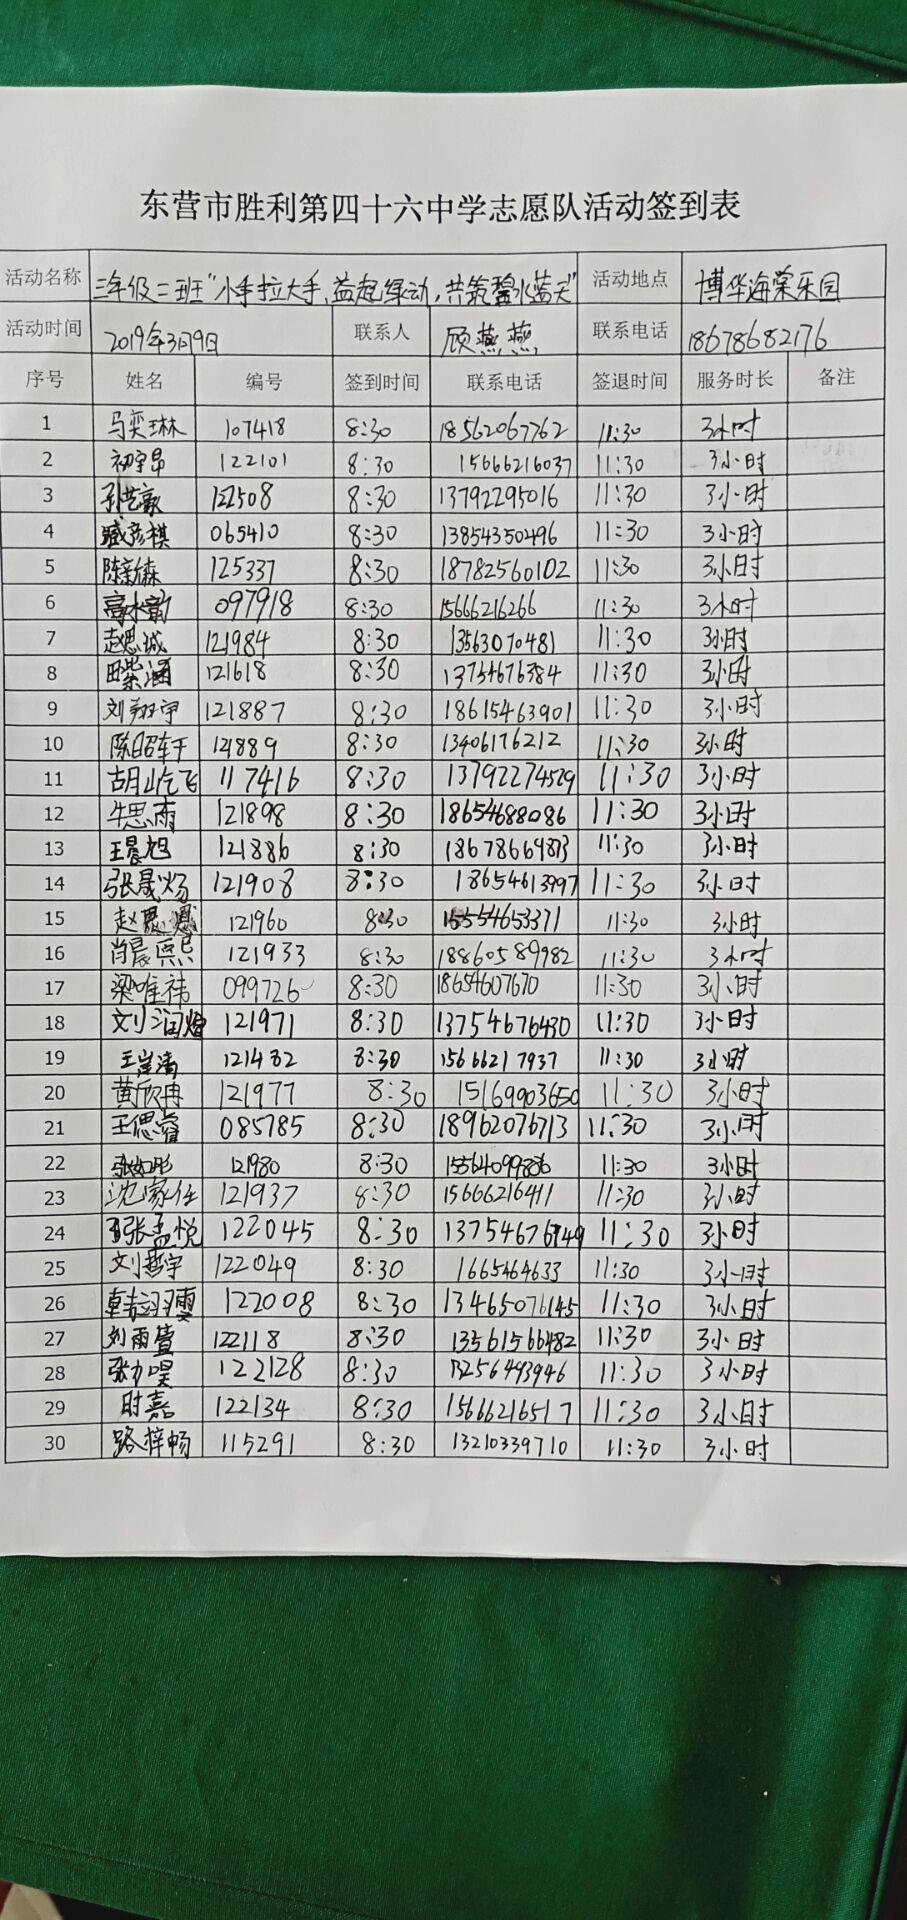 东营市胜利第四十六中学志愿队活动签到表
活动名称 三年级二班"小手拉大手,益起绿动,共筑碧水蓝天" 活动地点 博华海棠乐园
活动时间 2019年3月9日 联系人 顾燕燕 联系电话 18678682176
序号 姓名 编号 签到时间 联系电话 签退时间 服务时长 备注
1 马奕琳 107418 8:30 18562067762 11:30 3小时
2 初宇昂 122101 8:30 15666216037 11:30 3小时
3 孙艺豪 122508 8:30 13792295016 11:30 3小时
4 臧彦棋 065410 8:30 13854350496 11:30 3小时
5 陈新森 125337 8:30 18782560102 11:30 3小时
6 高水韵 097918 8:30 15666216266 11:30 3小时
7 赵思城 121984 8:30 13563070481 11:30 3小时
8 田紫涵 121618 8:30 13754676384 11:30 3小时
9 刘翔宇 121887 8:30 18615463901 11:30 3小时
10 陈昭轩 121889 8:30 13406176212 11:30 3小时
11 胡屹飞 117416 8:30 13792274529 11:30 3小时
12 牛思雨 121898 8:30 18654688086 11:30 3小时
13 王晨旭 121886 8:30 18678669873 11:30 3小时
14 张晟炀 121908 8:30 18654613997 11:30 3小时
15 赵 121960 8:30 15554653371 11:30 3小时
16 肖晨熙 121933 8:30 18860589982 11:30 3小时
17 梁唯祎 099726 8:30 18654607670 11:30 3小时
18 刘润熔 121971 8:30 13754676430 11:30 3小时
19 王岸清 121482 8:30 15666217937 11:30 3小时
20 黄欣冉 121977 8:30 15169903650 11:30 3小时
21 王偲睿 085785 8:30 18962076713 11:30 3小时
22 张如彤 121980 8:30 15564099886 11:30 3小时
23 沈家任 121937 8:30 15666216411 11:30 3小时
24 张孟悦 122045 8:30 13754676949 11:30 3小时
25 刘哲宇 122049 8:30 1665464633 11:30 3小时
26 韩翊雯 122008 8:30 13465076145 11:30 3小时
27 刘雨萱 122118 8:30 13561566482 11:30 3小时
28 张力昊 122128 8:30 13256493946 11:30 3小时
29 时嘉 122134 8:30 15666216517 11:30 3小时
30 路梓畅 115291 8:30 13210339710 11:30 3小时